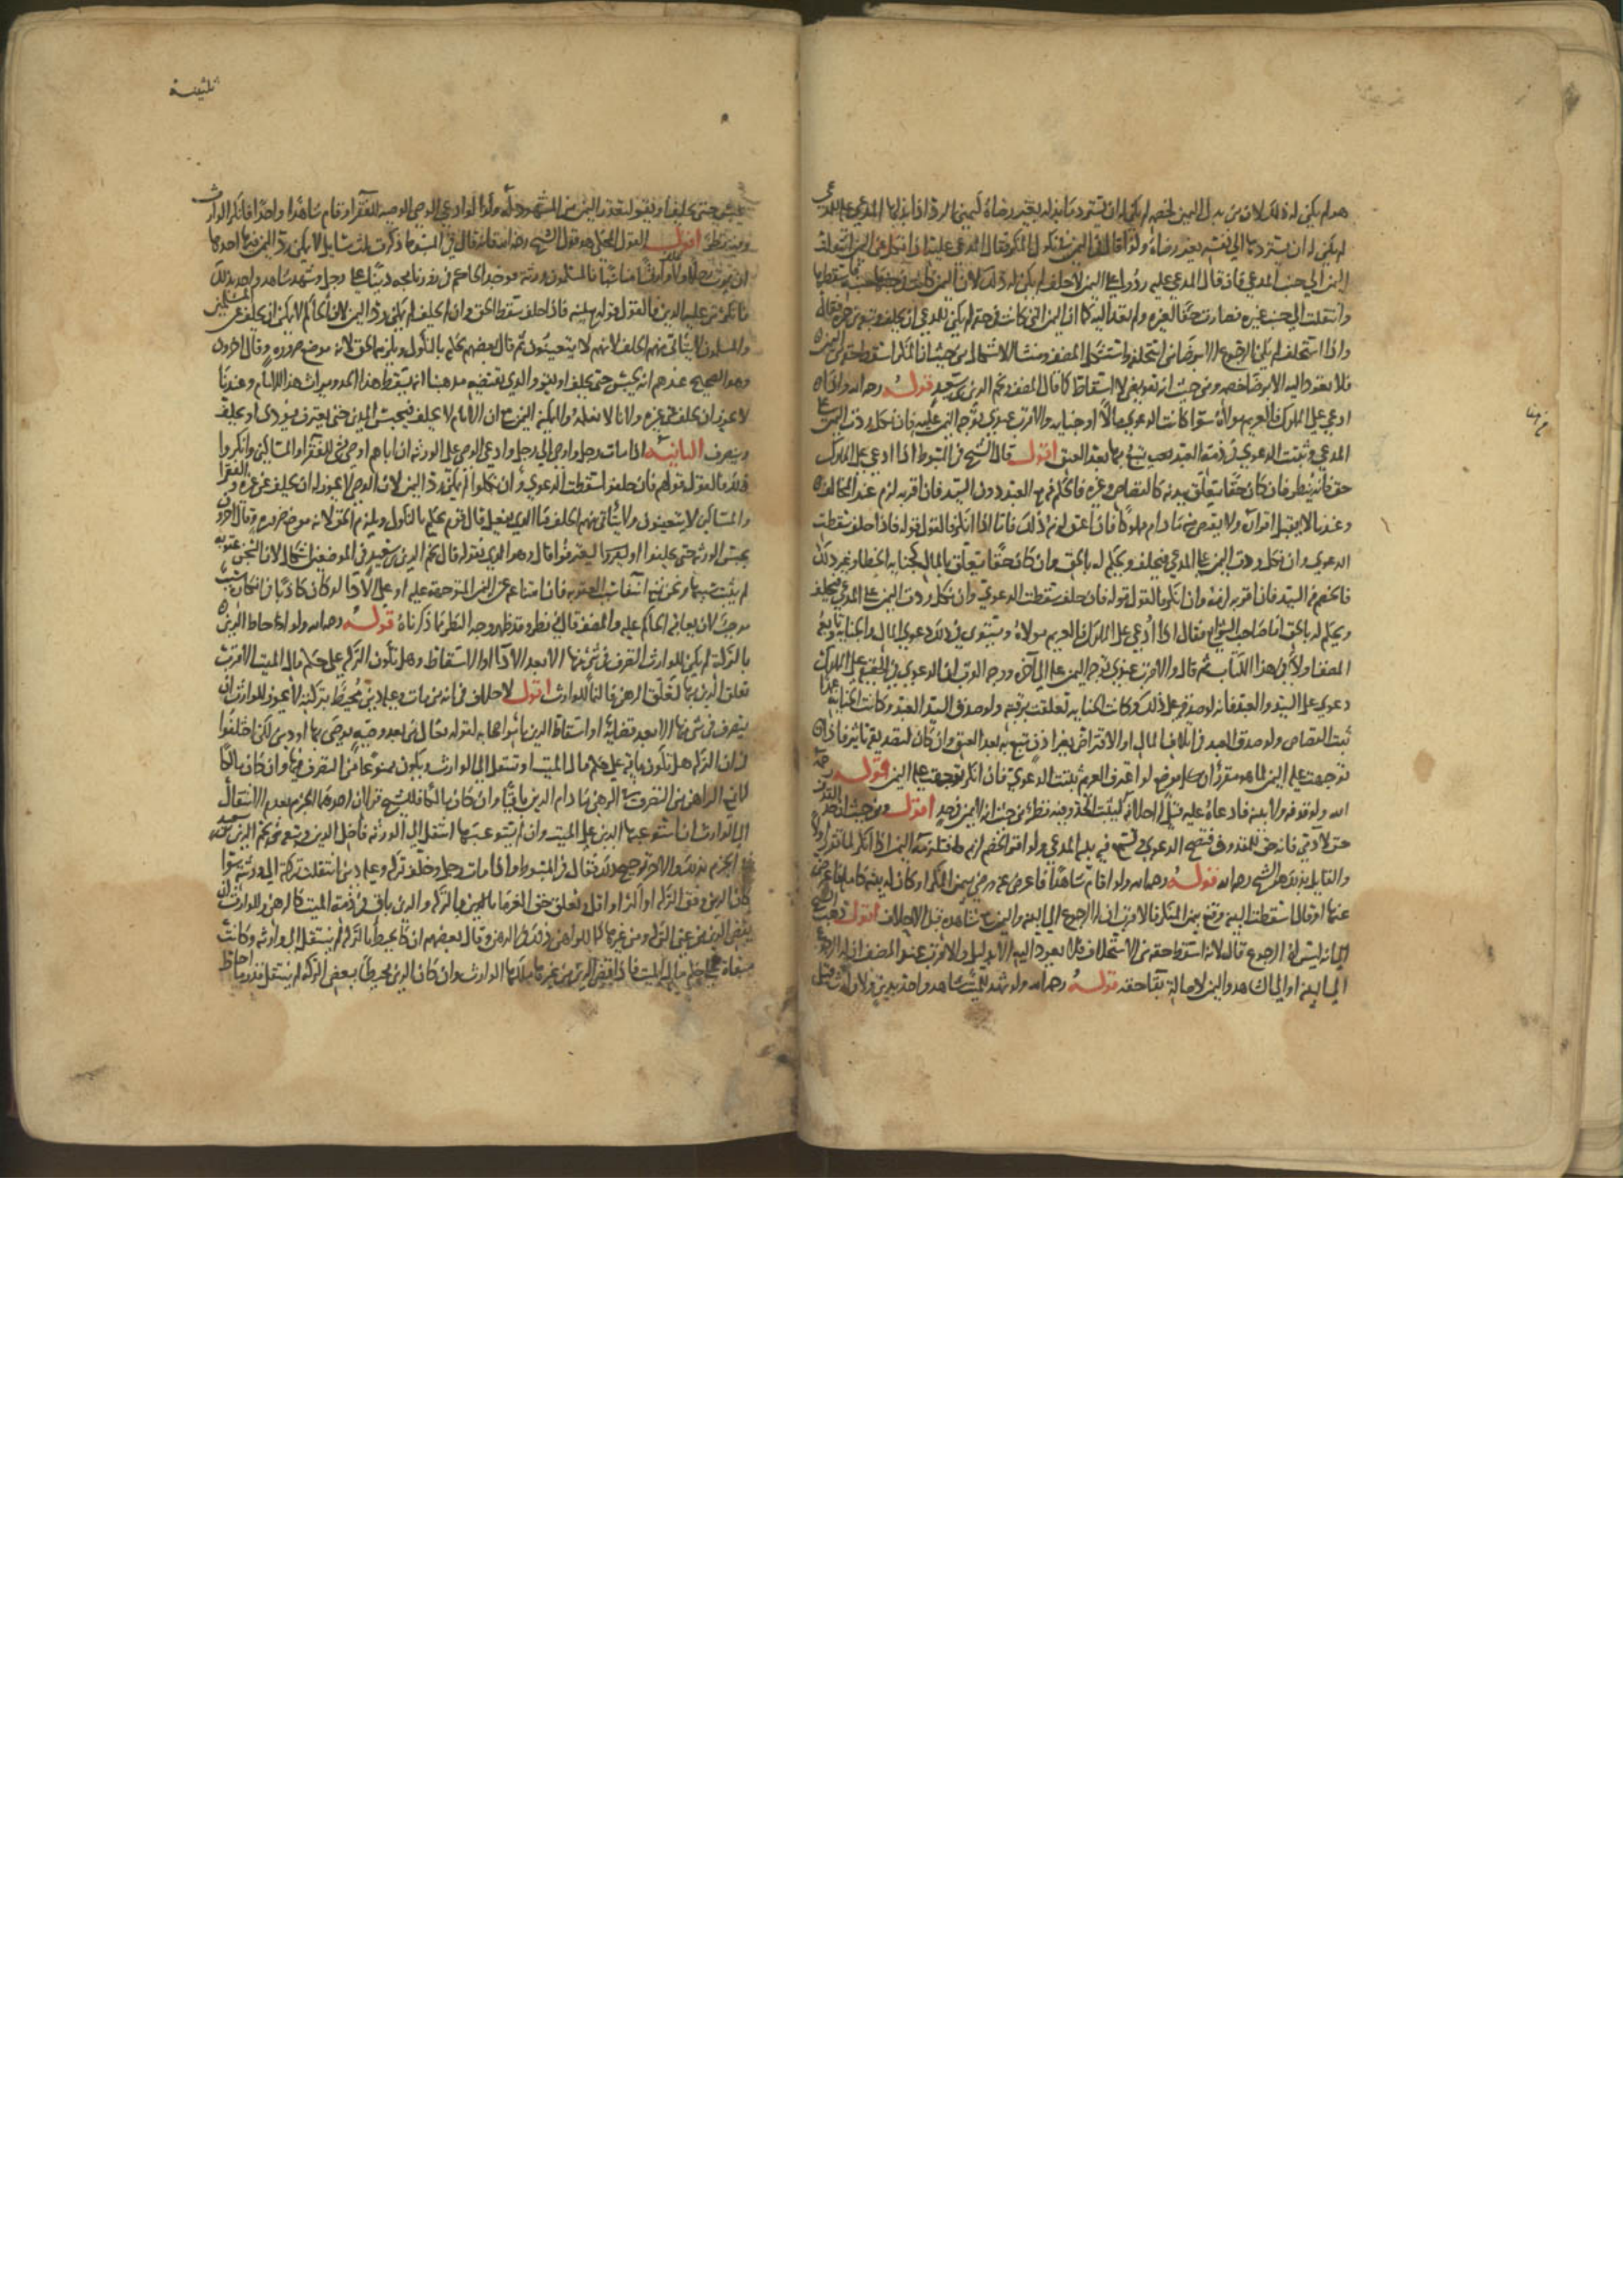 هو لم يكن له ذلك لان من بذل اليمين لخصمه لم يكن له ان يسترد ما بذله بغير رضاه كيمين الرد اذا بذلها المدعى عليه
لم يكن له ان يستردها الى نفسه بغير رضاه ولو
اليمين الى جنب المدعي فان قال المدعى عليه ردوا علي اليمين لاحلف لم يكن له ذلك لان اليمين كانت في
وانتقلت الى جنب غيره فصارت حقا لغيره ولم يعد اليه كما ان اليمين التي كانت في حقه لم يكن للمدعي ان يحلف
واذا استحلف لم يكن الرجوع الا برضا من استحلفه واستشكل المصنف ومنشا الاشكال من حيث ان المنكر اسقط حقه من اليمين
فلا يعود اليه الا برضا خصمه ومن حيث انه تفويض لا اسقاط كما قال المصنف ونجم الدين بن سعيد قوله رحمه الله واذا
ادعي على المملوك فالغريم مولاه سوا كانت الدعوى مالا او جناية والاقرب عندي توجه اليمين عليه فان نكل ردت اليمين على
المدعي وثبتت الدعوى في ذمة العبد يتبع بها بعد العتق اقول قال الشيخ في المبسوط اذا ادعي على المملوك
حق فانه ينظر فان كان حقا يتعلق ببدنه كالقصاص وغيره فالحكم فيه مع العبد دون السيد فان اقر به لزم عند المخالف
وعندنا لا يقبل اقراره ولا يقتص منه ما دام مملوكا فان اعتق لزمه ذلك فاما اذا انكر فالقول قوله فاذا حلف سقطت
الدعوى وان نكل ردت اليمين على المدعي فيحلف ويحكم له بالحق وان كان حقا يتعلق بالمال كجناية الخطا وغير ذلك
فالخصم فيه السيد فان اقر به لزمه وان انكر فالقول قوله فان حلف سقطت الدعوى وان نكل ردت اليمين على المدعي فيحلف
ويحكم له بالحق اما صاحب الشرائع فقال اذا ادعي على المملوك فالغريم مولاه ويستوي في ذلك دعوى المال والجناية وتابعه
المصنف اولا في هذا الكتاب ثم قال والاقرب عندي توجه اليمين عليه الى اخره ووجه القرب ان الدعوى في الحقيقة على المملوك
دعوى على السيد والعبد فانه لو صدقه على ذلك وكانت الجناية تعلقت برقبته ولو صدق السيد العبد وكانت الجناية
ثبت القصاص ولو صدق العبد في اتلاف المال او الاقتراض بغير اذن تبع به بعد العتق وان كان لتصديقه تاثير فاذا
توجهت عليه اليمين لما هو مقرر ان كل موضع لو اعترف الغريم يثبت الدعوى فان انكر توجهت عليه اليمين قوله رحمه
الله ولو قذفه ولا بينة فادعاه عليه قيل له احلافه ليثبت الحد وفيه نظر من حيث انه لا يمين في حد اقول ومن حيث انه
حق لادمي فانه حق للمقذوف
والقايل بذلك هو الشيخ رحمه الله قوله رحمه الله ولو اقام شاهدا فاعرض عنه ورضي بيمين المنكر او كان له بينة كاملة فاعرض
عنها او قال اسقطت البينة وقنع بيمين المنكر فالاقرب ان له الرجوع الى البينة واليمين مع شاهده قبل الاحلاف اقول ذهب الشيخ
الى انه ليس له الرجوع قال لانه اسقط حقه من الاستحلاف فلا يعود اليه الا بدليل والاقرب عند المصنف ان له الرجوع
الى البينة او الى الشاهد واليمين لاصالة بقا حقه قوله رحمه الله ولو شهد للميت شاهد واحد بدين ولا وارث قيل
ثلثينه
يحبس حتى يحلف او يقر لتعذر اليمين من المشهود له وكذا لو ادعى الوصي الوصية للفقرا واقام شاهدا واحدا فانكر الوارث
وفيه نظر اقول القول المحكي هو قول الشيخ رحمه الله فانه قال في المبسوط ذكرت ثلث مسايل لا يمكن رد اليمين فيها احدها
ان يموت رجل ولا وارث له فالمسلمون ورثته فوجد الحاكم في روزنامجه دينا على رجل وشهد شاهد واحد بذلك
فانكر من عليه الدين فالقول قوله مع يمينه فاذا حلف سقط الحق وان لم يحلف لم يمكن رد اليمين لان الحاكم لا يمكن ان يحلف عن المسلمين
والمسلمون لا يتاتى منهم الحلف لانهم لا يتعينون ثم قال بعضهم يحكم بالنكول ويلزمه الحق لانه موضع ضرورة وقال اخرون
وهو الصحيح عندهم انه يحبس حتى يحلف او يقر والذي يقتضيه مذهبنا انه يسقط هذا لان ميراث هذا للامام وعندنا
لا يجوز ان يحلف عن غيره ولا ما لا يعلمه ولا يمكنه اليمين مع ان الامام لا يحلف فيحبس المدين حتى يعترف فيؤدي او يحلف
وينصرف الثانية اذا مات رجل واوصى الى رجل وادعى الوصي على الورثة ان اباهم اوصى بشي للفقرا والمساكين وانكروا
ذلك فالقول قولهم فان حلفوا سقطت الدعوى وان نكلوا لم يمكن رد اليمين لان الوصي لا يجوز له ان يحلف عن غيره والفقرا
والمساكين لا يتعينون ولا يتاتى منهم الحلف فما الذي يفعل قال قوم يحكم بالنكول ويلزم الحق لانه موضع ضرورة وقال اخرون
يحبس الورثة حتى يحلفوا او يعترفوا قال وهو الذي نقوله قال نجم الدين بن سعيد في الموضعين اشكال لان السجن عقوبة
لم يثبت سببها
موجبها لان يعاقبه الحاكم عليه والمصنف قال فيه نظر وقد ظهر وجه النظر مما ذكرناه قوله رحمه الله ولو احاط الدين
بالتركة لم يكن للوارث التصرف في شي منها الا بعد الادا او الاسقاط وهل تكون التركة على حكم مال الميت الاقرب
تعلق الدين بها تعلق الرهن فالنما للوارث اقول لا خلاف في انه من مات وعليه دين محيط بتركته لا يجوز للوارث ان
يتصرف في شي منها الا بعد قضائه او اسقاط الدين باسرها به لقوله تعالى من بعد وصية يوصى بها او دين لكن اختلفوا
في ان التركة هل تكون باقية على حكم مال الميت او تنتقل الى الوارث ويكون ممنوعا من التصرف فيها وان كان مالكا
كما في الراهن من التصرف في الرهن ما دام الدين باقيا وان كان مالكا فللشيخ قولان احدهما الجزم بعدم الانتقال
الى الوارث ان استوعبها الدين على الميت وان لم يستوعبها انتقل الى الورثة فاضل الدين وتبعه نجم الدين بن سعيد
في الجزم بذلك والاخر توجيه ذلك فقال في المبسوط واذا مات رجل وخلف تركة وعليه دين انتقلت تركته الى ورثته سوا
كان الدين وفق التركة او اكثر او اقل وتعلق حق الغرما بالعين والتركة والدين باق في ذمة الميت كالرهن وللوارث ان
يقضي الدين من عين التركة ومن غيرها كما للراهن ذلك في الرهن وقال بعضهم ان كان محيطا بالتركة لم ينتقل الى وارثه وكانت
مبقاة على حكم مال الميت فاذا قضي الدين من غيرها ملكها الوارث وان كان الدين محيطا ببعض التركة لم ينتقل قدر ما احاط